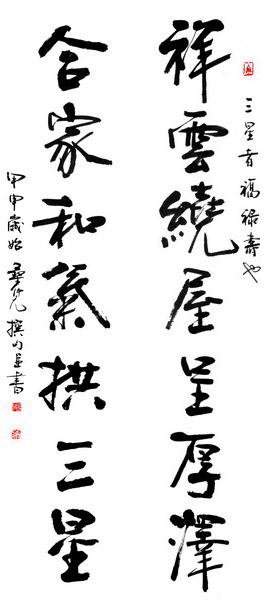 三星者福禄壽也
祥雲繞屋呈厚澤
合家和氣拱三星
甲申歲始尋凭撰句並書